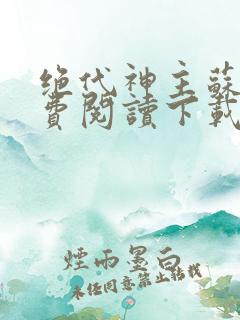 绝代神主蘇
費閱讀下載
煙雨墨白
未经同意禁止转载